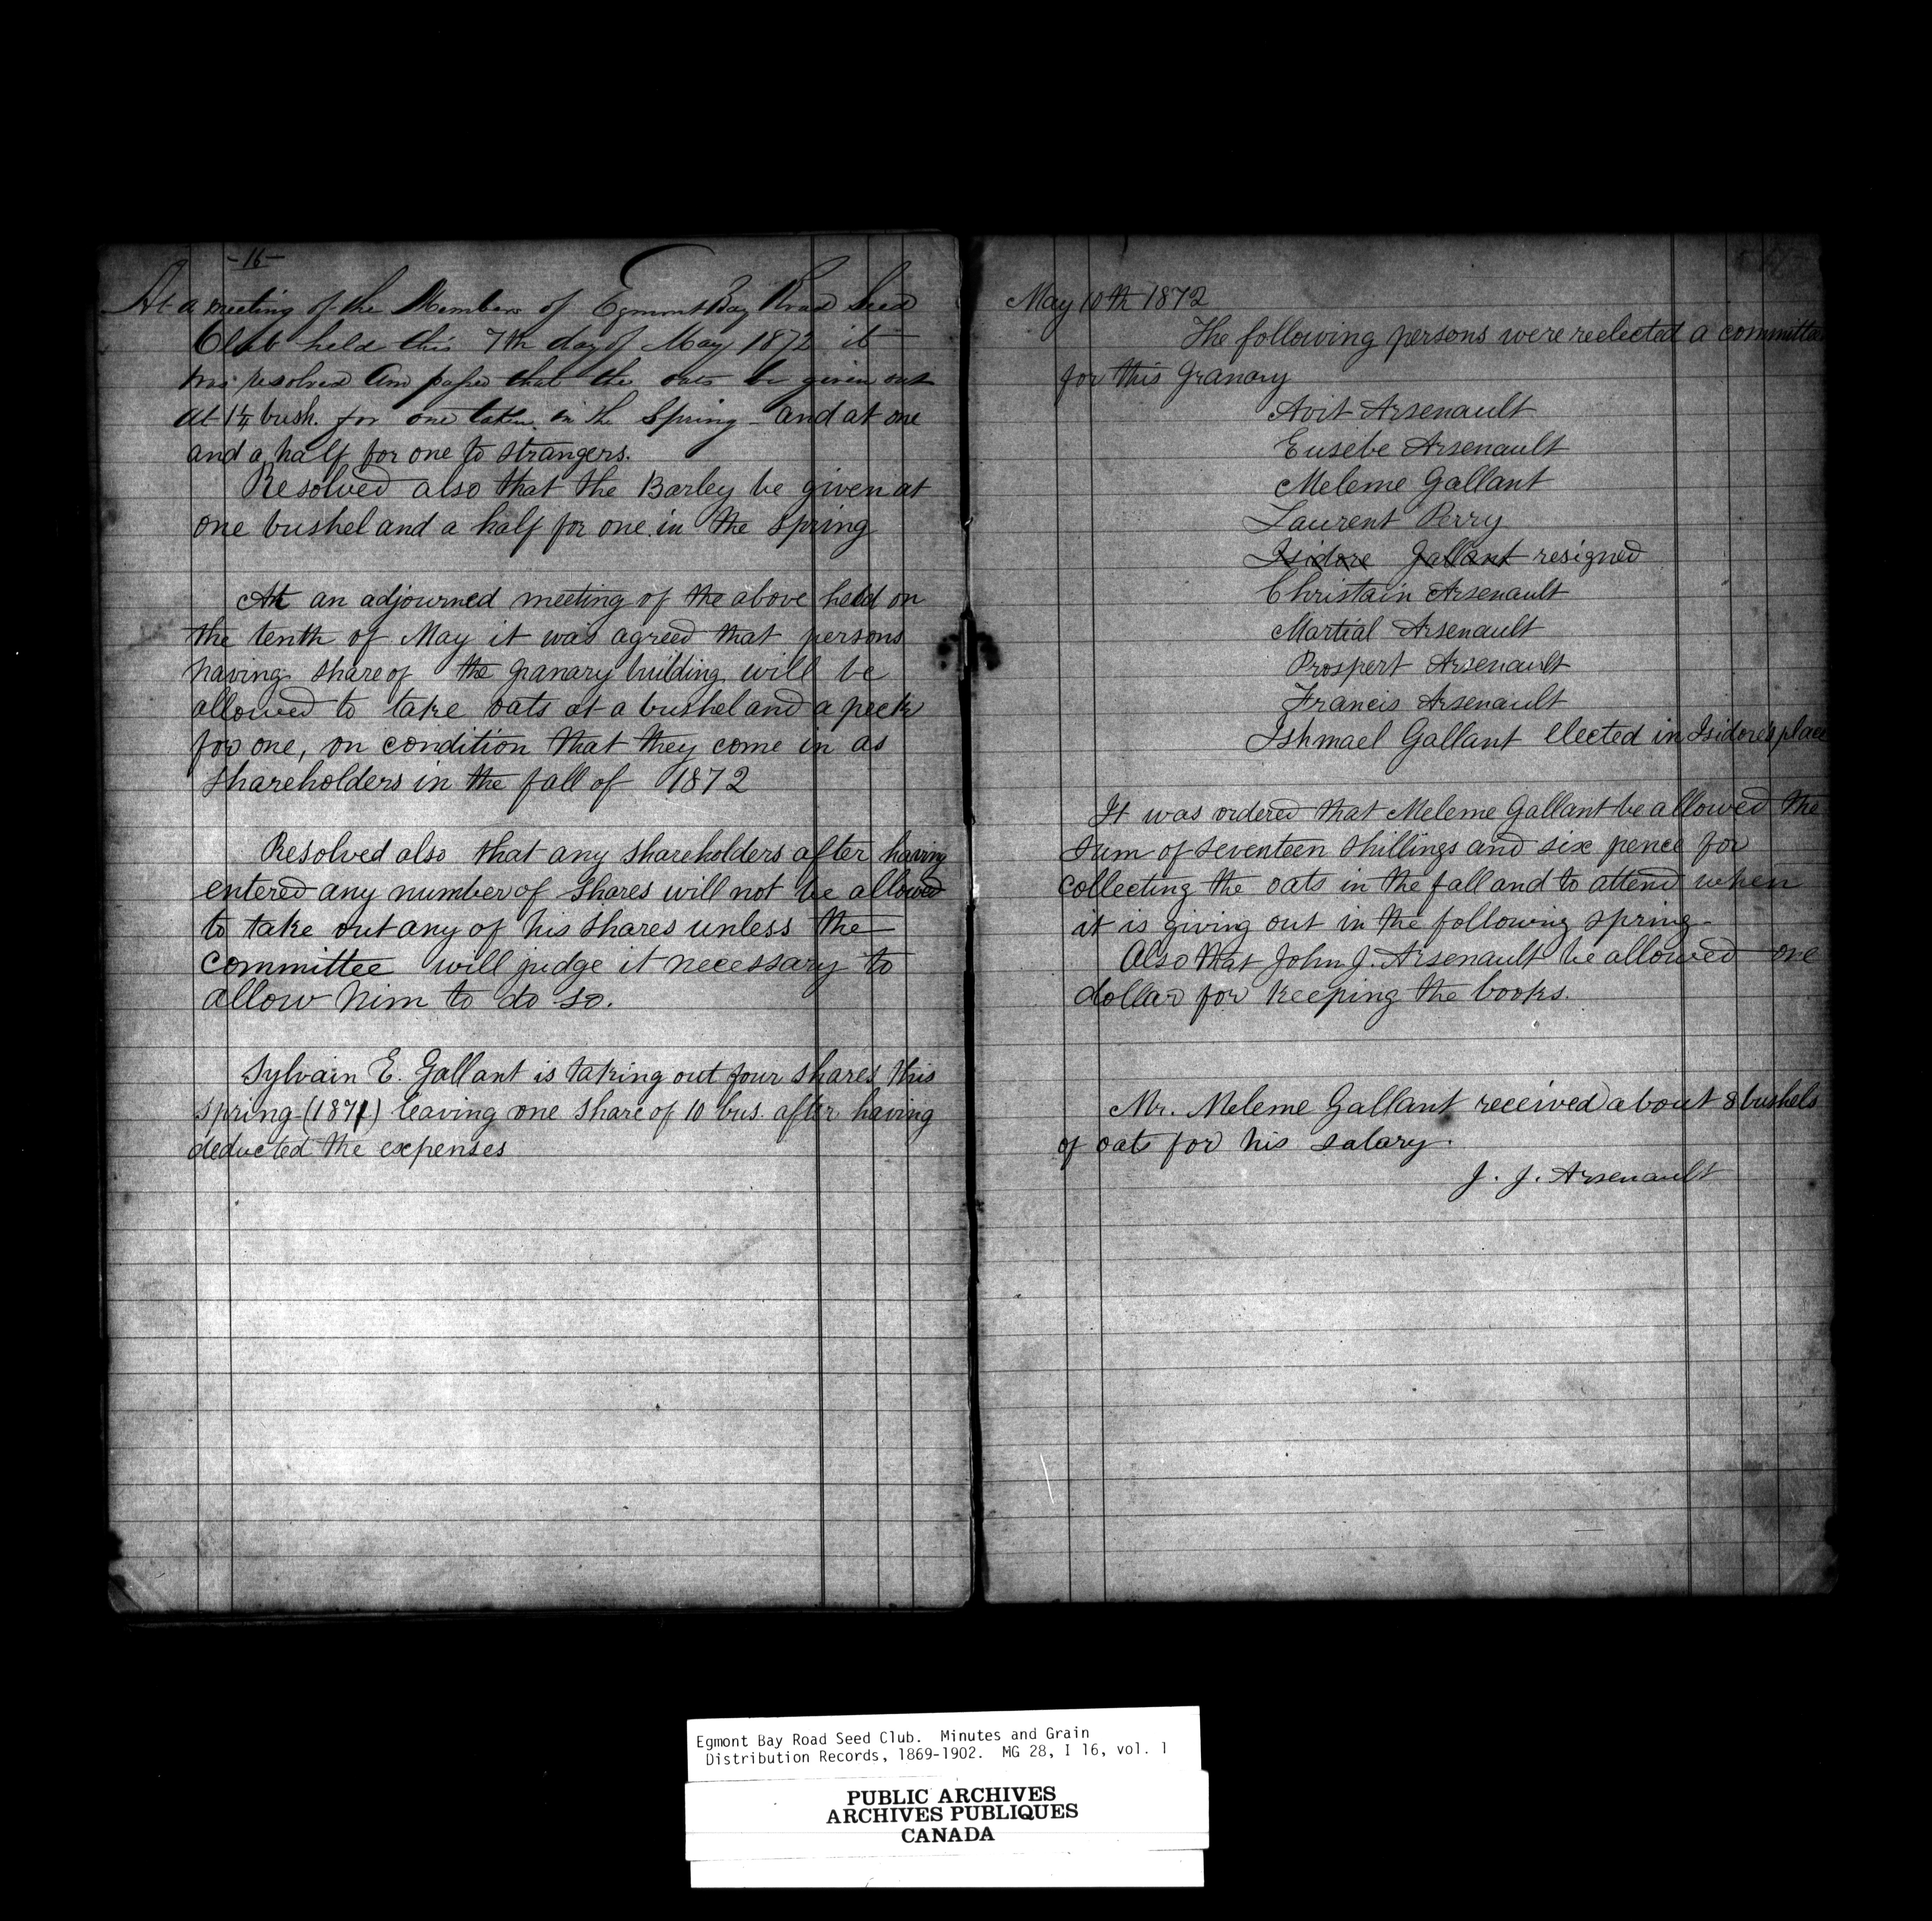 -16-
At a meeting of the Members of Egmont Bay Road Seed
Club held this 7th day of May 1872 it
was resolved and passed that the oats be given out
at 1¼ bush. for one taken in the Spring - and at one
and a half for one to strangers.
Resolved also that the Barley be given at
one bushel and a half for one in the spring
At an adjourned meeting of the above held on
the tenth of May it was agreed that persons
having share of the granary building will be
allowed to take oats at a bushel and a peck
for one, on condition that they come in as
shareholders in the fall of 1872
Resolved also that any shareholders after having
entered any number of shares will not be allowed
to take out any of his shares unless the
committee will judge it necessary to
allow him to do so.
Sylvain E. Gallant is taking out four shares this
spring (1871) leaving one share of 10 bus. after having
deducted the expenses
17
May 10th 1872
The following persons were reelected a committee
for this granary
Avit Arsenault
Eusebe Arsenault
Meleme Gallant
Laurent Perry
Isidore Gallant resigned
Christain Arsenault
Martial Arsenault
Prospert Arsenault
Francis Arsenault
Ishmael Gallant elected in Isidore's place
It was ordered that Meleme Gallant be allowed the
sum of seventeen shillings and six pence for
collecting the oats in the fall and to attend when
it is giving out in the following spring.
Also that John J. Arsenault be allowed one
dollar for keeping the books.
Mr. Meleme Gallant received about 8 bushels
of oats for his salary.
J. J. Arsenault
Egmont Bay Road Seed Club. Minutes and Grain
Distribution Records, 1869-1902. MG 28, I 16, vol. 1
PUBLIC ARCHIVES
ARCHIVES PUBLIQUES
CANADA